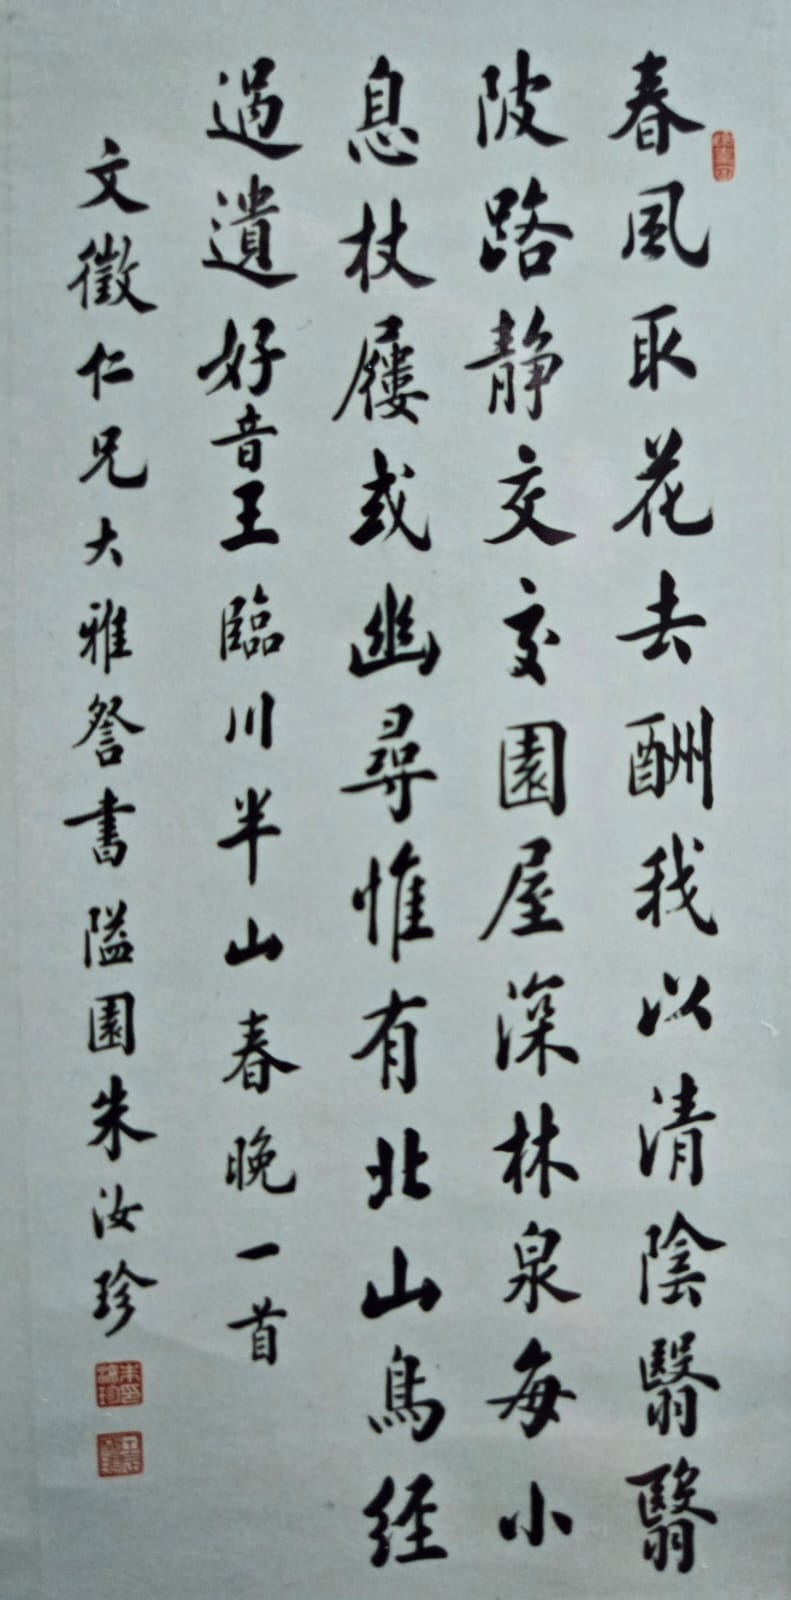 春風取花去酬我以清陰翳翳
陂路静交交園屋深林泉每小
息杖屦或幽尋惟有北山鳥經
過遺好音王臨川半山春晚一首
文徵仁兄大雅詧書隘園朱汝珍